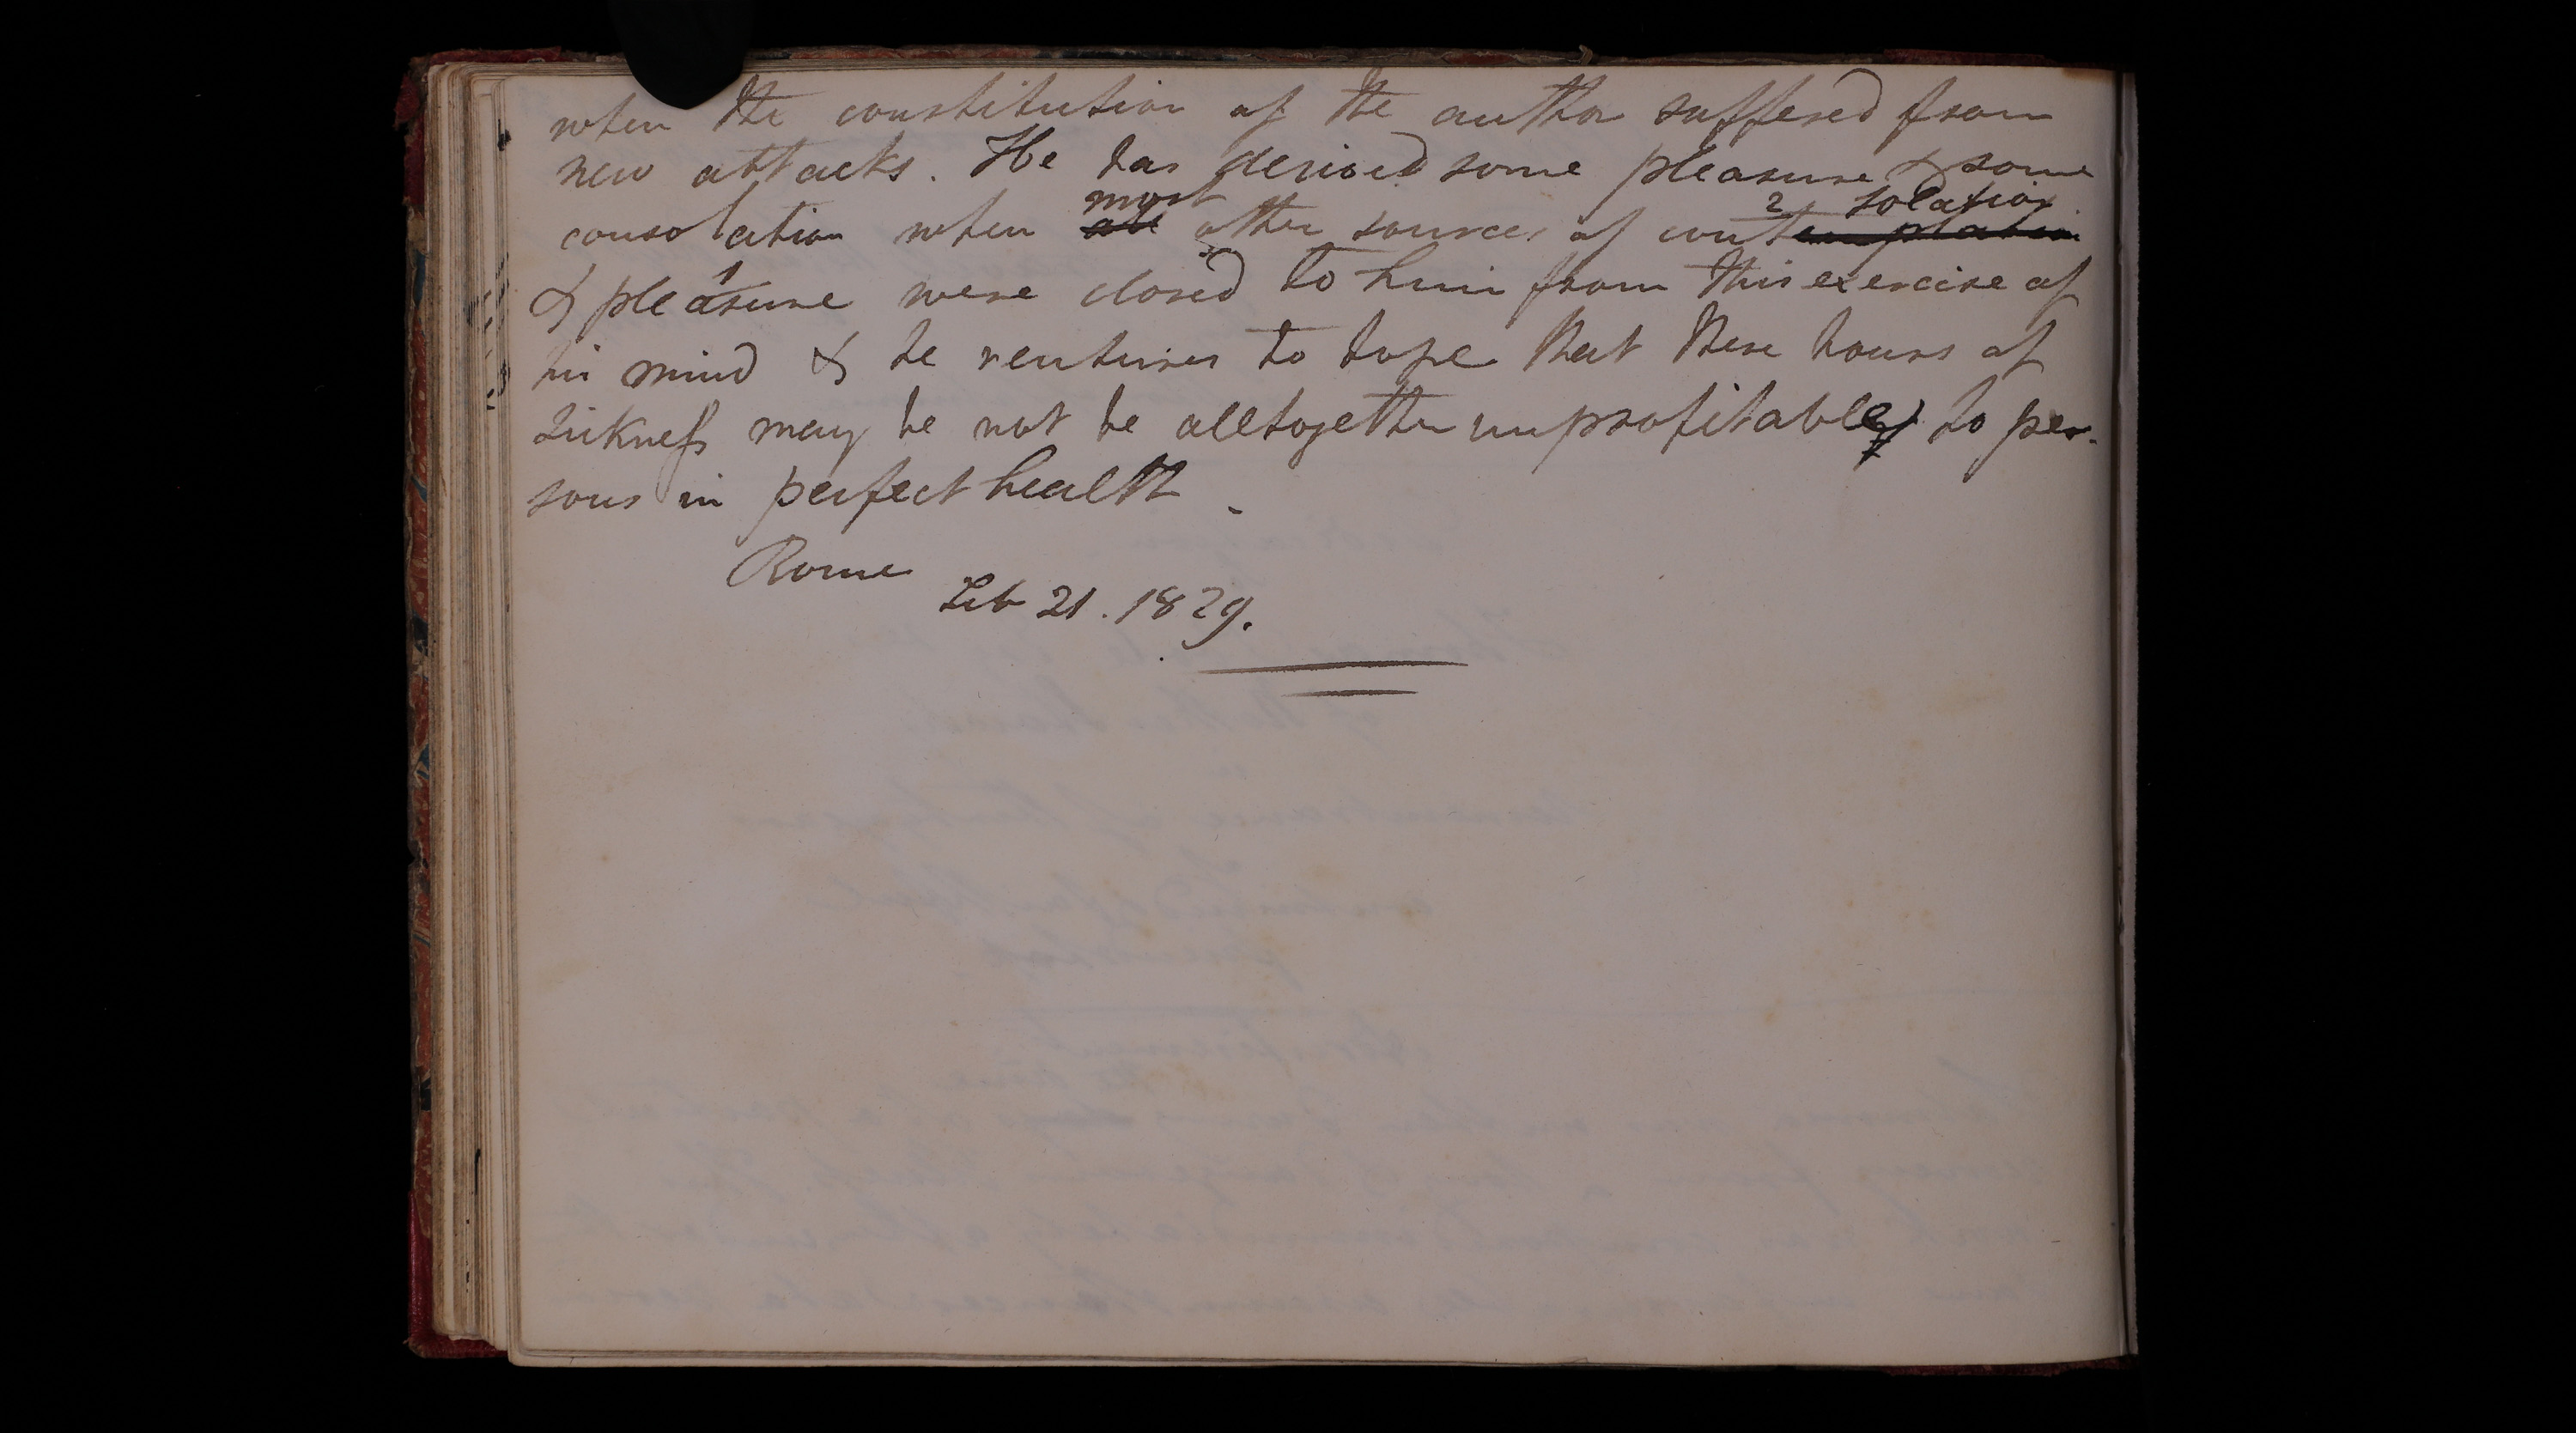 when the constitution of the author suffered from
new attacks. He has derived some pleasure & some
most 2 solation
consolation when all other sources of contemplation
1
& pleasure were closed to him from this exercise of
his mind & he ventures to hope that these hours of
sickness may be not be alltogether unprofitable to per-
sons in perfect health.
Rome
Feb 21. 1829.